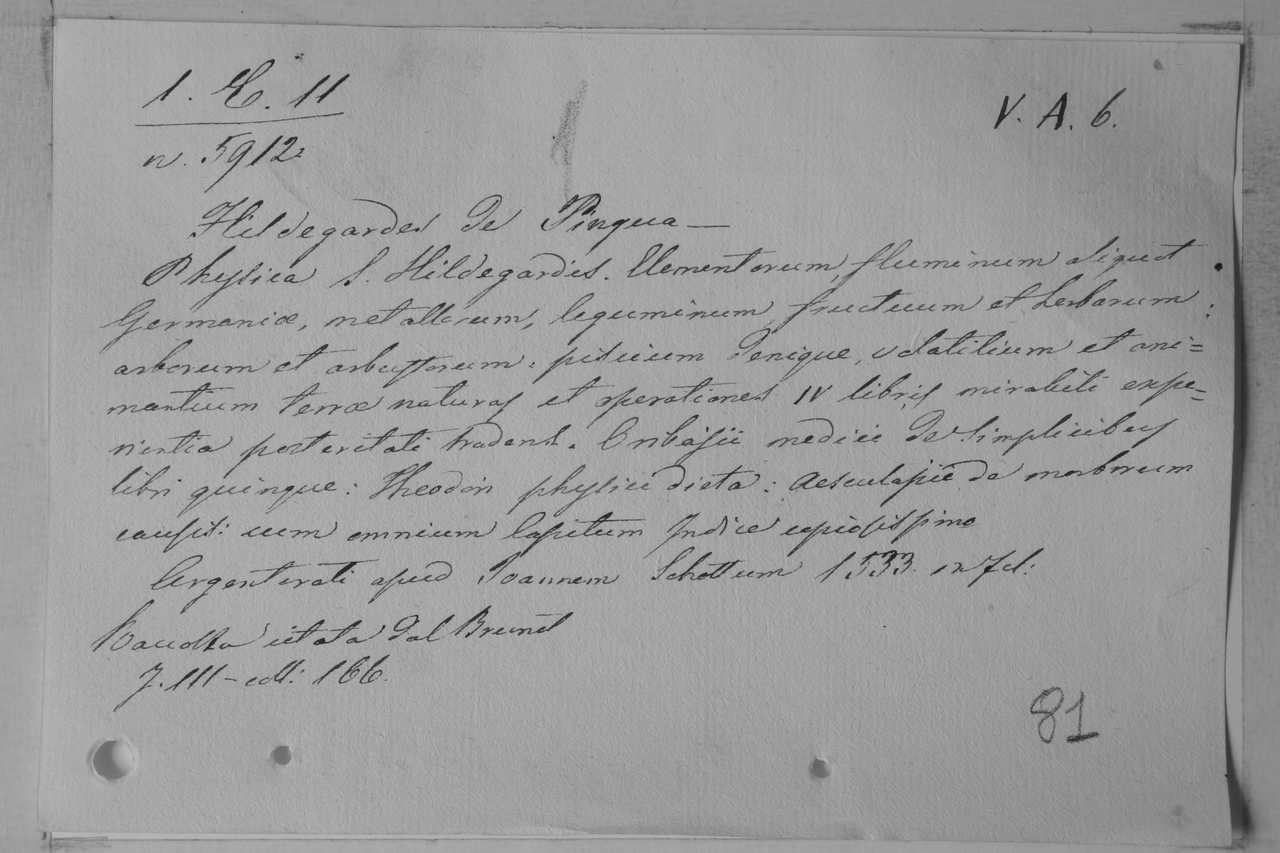 1. E. 11
n. 5912
V. A. 6.
Hildegardes de Pingua —
Physica S. Hildegardis. Elementorum, fluminum aliquot
Germaniæ, metallorum, leguminum, fructuum et herbarum:
arborum et arbustorum: piscium denique, volatilium et ani=
mantium terræ naturas et operationes IV libris mirabili expe=
rientia posteritati tradens. Oribasii medici de Simplicibus
libri quinque: Theodori physici dieta: Aesculapii de morborum
causis: cum omnium Capitum Indice copiosissimo
Argentorati apud Joannem Schottum 1533. in fol:
Raccolta citata dal Brunet
T. III - coll: 166.
81